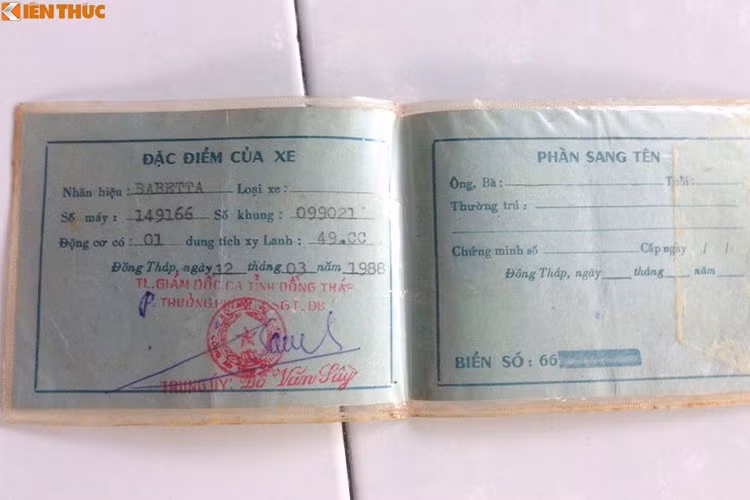 KIẾN THỨC
ĐẶC ĐIỂM CỦA XE
Nhãn hiệu : BABETTA Loại xe :
Số máy : 149166 Số khung : 099021
Động cơ có : 01 dung tích xy Lanh : 49.CC
Đồng Tháp, ngày 12 tháng 03 năm 1988
TL.GIÁM ĐỐC CA TỈNH ĐỒNG THÁP
P. TRƯỞNG
TRUNG ÚY: Đỗ Văn Sấy
PHẦN SANG TÊN
Ông, Bà : Tuổi :
Thường trú :
Chứng minh số Cấp ngày / /
Đồng Tháp, ngày tháng năm
BIỂN SỐ : 66